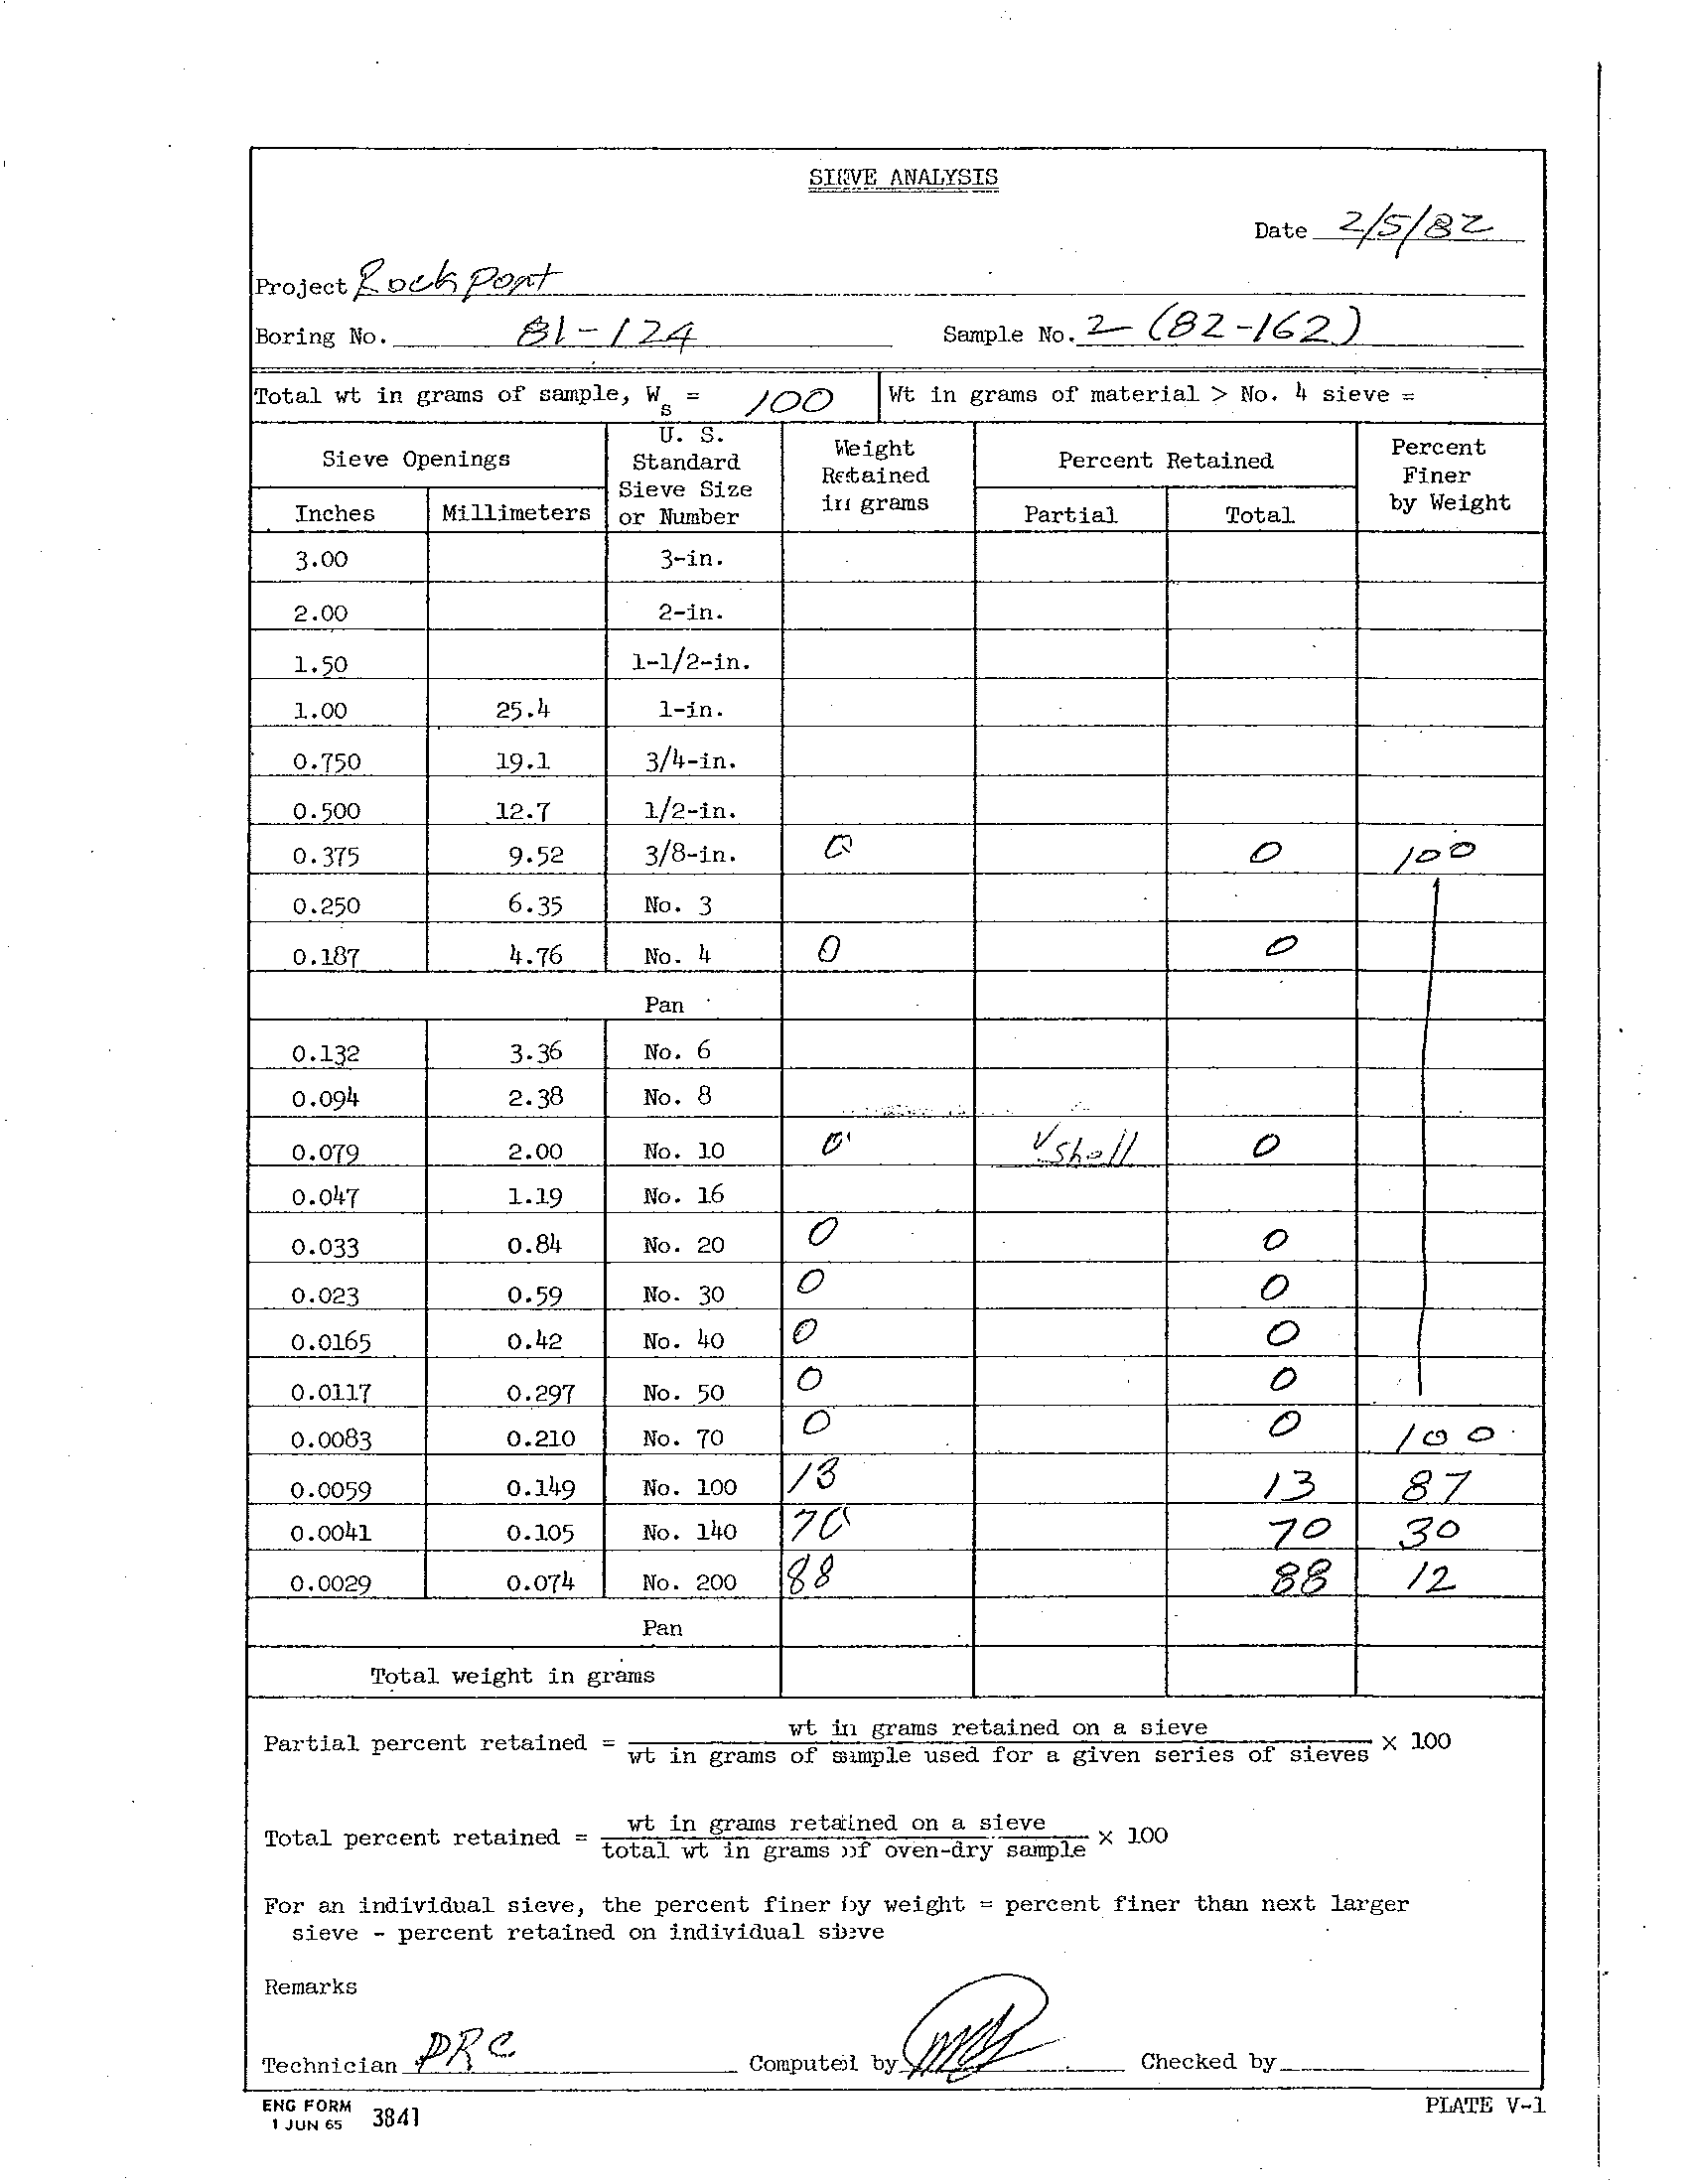 SIEVE ANALYSIS
Date 2/5/82
Project Rockport
Boring No. 81-124 Sample No. 2 (82-162)
Total wt in grams of sample, Ws = 100 Wt in grams of material > No. 4 sieve =
Sieve Openings U. S. Standard Sieve Size or Number Weight Retained in grams Percent Retained Percent Finer by Weight
Inches Millimeters Partial Total
3.00 3-in.
2.00 2-in.
1.50 1-1/2-in.
1.00 25.4 1-in.
0.750 19.1 3/4-in.
0.500 12.7 1/2-in.
0.375 9.52 3/8-in. 0 0 100
0.250 6.35 No. 3
0.187 4.76 No. 4 0 0
Pan
0.132 3.36 No. 6
0.094 2.38 No. 8
0.079 2.00 No. 10 0 √ Shell 0
0.047 1.19 No. 16
0.033 0.84 No. 20 0 0
0.023 0.59 No. 30 0 0
0.0165 0.42 No. 40 0 0
0.0117 0.297 No. 50 0 0
0.0083 0.210 No. 70 0 0 100
0.0059 0.149 No. 100 13 13 87
0.0041 0.105 No. 140 70 70 30
0.0029 0.074 No. 200 88 88 12
Pan
Total weight in grams
Partial percent retained = wt in grams retained on a sieve / wt in grams of sample used for a given series of sieves × 100
Total percent retained = wt in grams retained on a sieve / total wt in grams of oven-dry sample × 100
For an individual sieve, the percent finer by weight = percent finer than next larger
sieve - percent retained on individual sieve
Remarks
Technician DRC Computed by Checked by
ENG FORM 3841 PLATE V-1
1 JUN 65